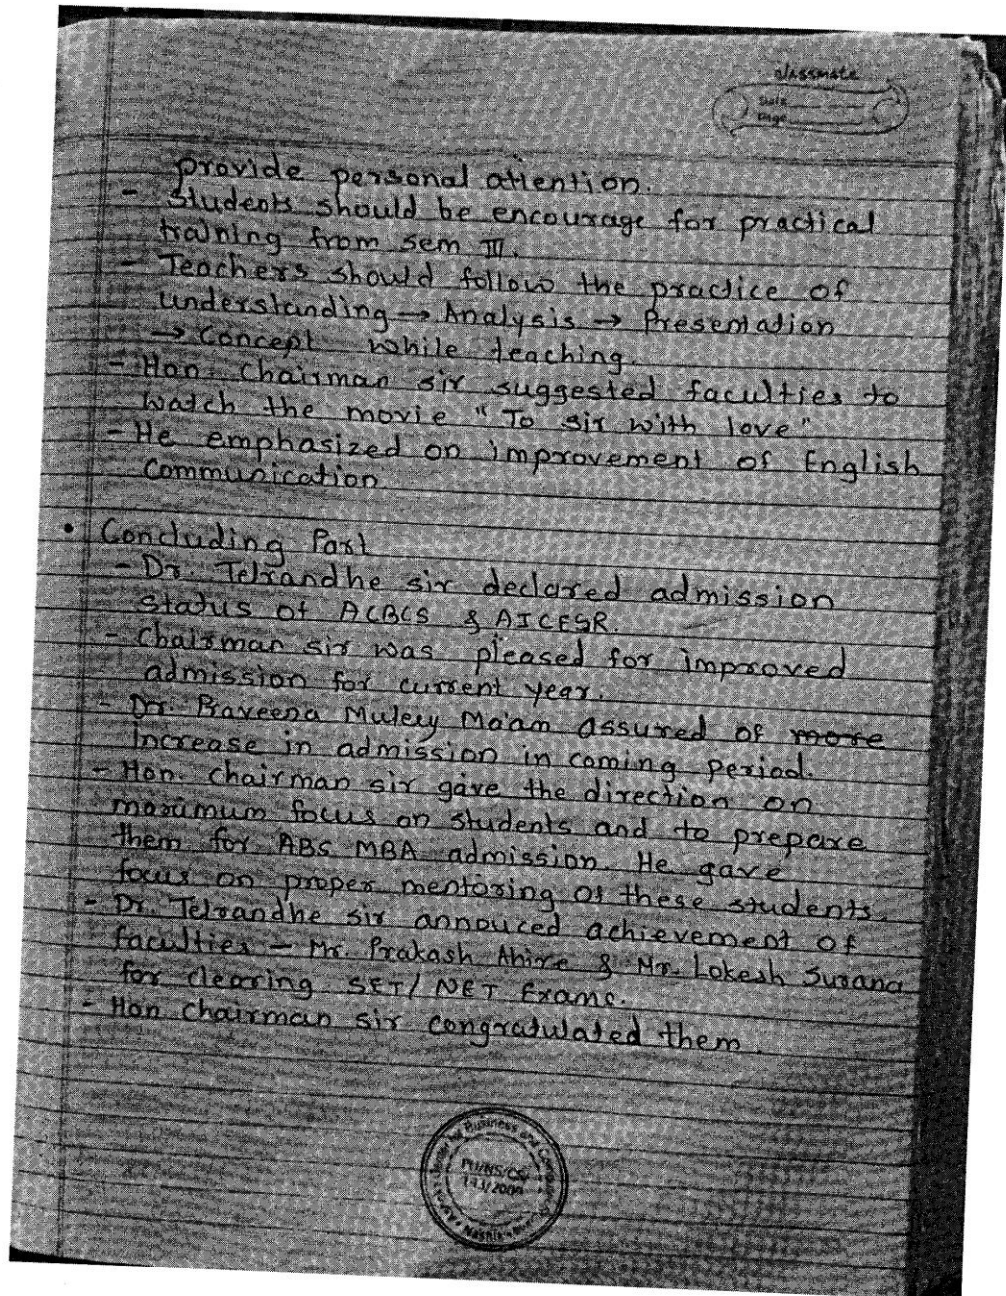 classmate
Date
Page
provide personal attention.
- Students should be encourage for practical
training from sem III.
- Teachers should follow the practice of
understanding → Analysis → Presentation
→ Concept while teaching.
- Hon. Chairman sir suggested faculties to
watch the movie "To sir with love"
- He emphasized on improvement of English
Communication
• Concluding Part
- Dr. Telrandhe sir declared admission
status of ACBCS & AICESR.
- Chairman sir was pleased for improved
admission for current year.
- Dr. Praveena Muley Ma'am assured of more
increase in admission in coming period.
- Hon. chairman sir gave the direction on
maximum focus on students and to prepare
them for ABS MBA admission. He gave
focus on proper mentoring of these students.
- Dr. Telrandhe sir annouced achievement of
faculties - Mr. Prakash Ahire & Mr. Lokesh Surana
for clearing SET/NET Exams.
- Hon chairman sir congratulated them.
Business and
PU/NS/CS/
Nashik